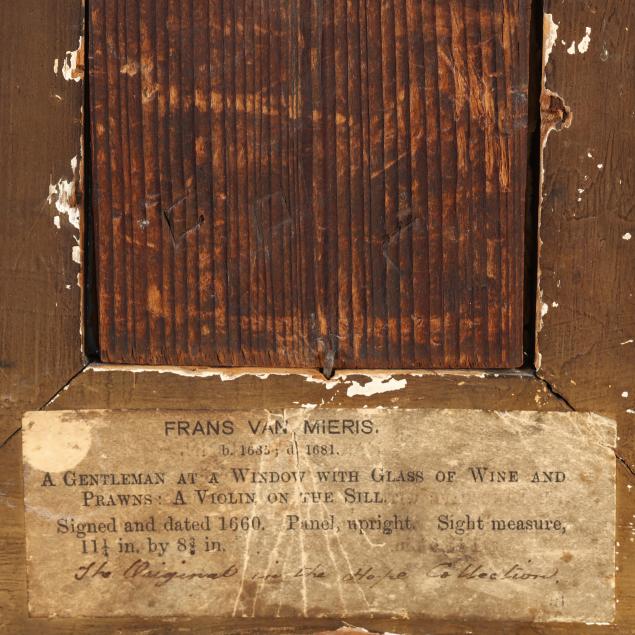 FRANS VAN MIERIS.
b. 1635; d. 1681.
A GENTLEMAN AT A WINDOW WITH GLASS OF WINE AND
PRAWNS: A VIOLIN ON THE SILL.
Signed and dated 1660. Panel, upright. Sight measure,
11¼ in. by 8¾ in.
The Original in the Hope Collection.